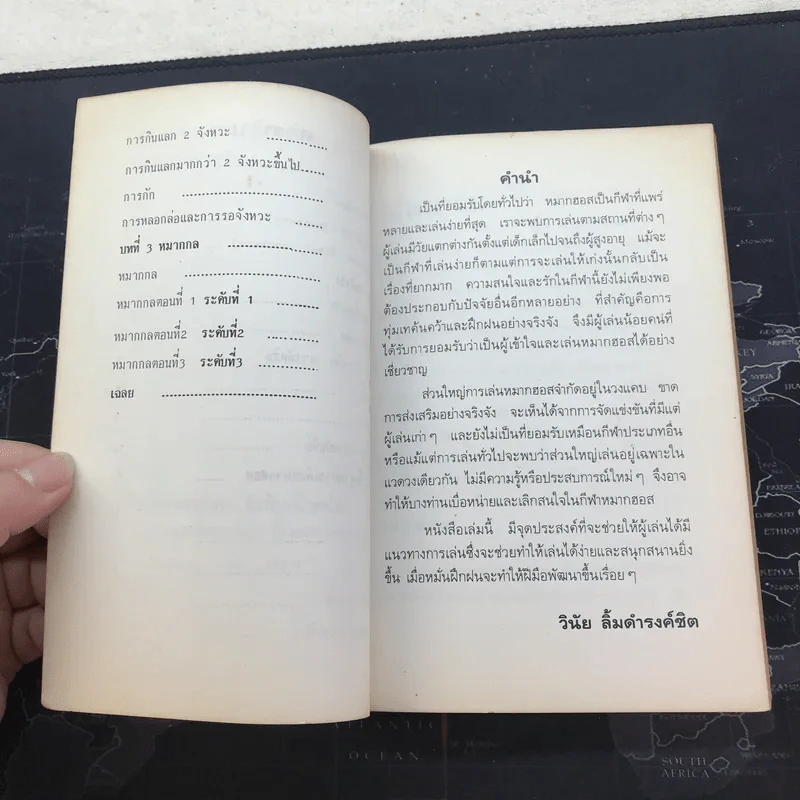 การกินแลก 2 จังหวะ ..............
การกินแลกมากกว่า 2 จังหวะขึ้นไป.....
การกัก ..............................
การหลอกล่อและการรอจังหวะ ..............
บทที่ 3 หมากกล ..............
หมากกล ..............................
หมากกลตอนที่ 1 ระดับที่ 1 ..............
หมากกลตอนที่2 ระดับที่2 ..............
หมากกลตอนที่3 ระดับที่3 ..............
เฉลย ..............................
คำนำ
เป็นที่ยอมรับโดยทั่วไปว่า หมากฮอสเป็นกีฬาที่แพร่
หลายและเล่นง่ายที่สุด เราจะพบการเล่นตามสถานที่ต่างๆ
ผู้เล่นมีวัยแตกต่างกันตั้งแต่เด็กเล็กไปจนถึงผู้สูงอายุ แม้จะ
เป็นกีฬาที่เล่นง่ายก็ตามแต่การจะเล่นให้เก่งนั้นกลับเป็น
เรื่องที่ยากมาก ความสนใจและรักในกีฬานี้ยังไม่เพียงพอ
ต้องประกอบกับปัจจัยอื่นอีกหลายอย่าง ที่สำคัญคือการ
ทุ่มเทค้นคว้าและฝึกฝนอย่างจริงจัง จึงมีผู้เล่นน้อยคนที่
ได้รับการยอมรับว่าเป็นผู้เข้าใจและเล่นหมากฮอสได้อย่าง
เชี่ยวชาญ
ส่วนใหญ่การเล่นหมากฮอสจำกัดอยู่ในวงแคบ ขาด
การส่งเสริมอย่างจริงจัง จะเห็นได้จากการจัดแข่งขันที่มีแต่
ผู้เล่นเก่าๆ และยังไม่เป็นที่ยอมรับเหมือนกีฬาประเภทอื่น
หรือแม้แต่การเล่นทั่วไปจะพบว่าส่วนใหญ่เล่นอยู่เฉพาะใน
แวดวงเดียวกัน ไม่มีความรู้หรือประสบการณ์ใหม่ๆ จึงอาจ
ทำให้บางท่านเบื่อหน่ายและเลิกสนใจในกีฬาหมากฮอส
หนังสือเล่มนี้ มีจุดประสงค์ที่จะช่วยให้ผู้เล่นได้มี
แนวทางการเล่นซึ่งจะช่วยทำให้เล่นได้ง่ายและสนุกสนานยิ่ง
ขึ้น เมื่อหมั่นฝึกฝนจะทำให้ฝีมือพัฒนาขึ้นเรื่อยๆ
วินัย ลิ้มดำรงค์ชิต
ATLANTIC
OCEAN
SOUTH
AFRICA